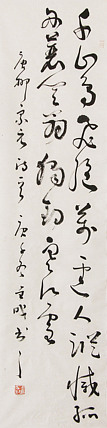 千山鳥飛絕萬徑人蹤滅孤
舟蓑笠翁獨釣寒江雪
唐柳宗元詩書